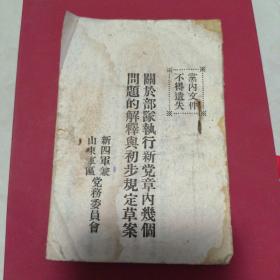 黨內文件
不得遺失
關於部隊執行新党章內幾個
問題的解釋與初步規定草案
新四軍兼
山東軍區
党務委員會